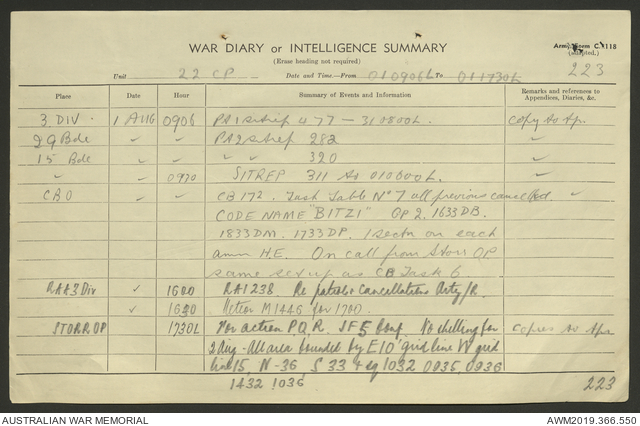 WAR DIARY or INTELLIGENCE SUMMARY
(Erase heading not required)
Army Form C. 2118
(adapted.)
Unit 22 CP Date and Time.—From 010906L To 011730L 223
Place Date Hour Summary of Events and Information Remarks and references to Appendices, Diaries, &c.
3 DIV. 1 AUG 0906 PA1 sitref 477 — 310800L. copy to Ap.
29 Bde " " PA2 sitref 282 "
15 Bde " " " " 320 "
" 0970 SITREP 311 to 010600L. "
CBO " " CB 172. Task Table No 7 all previous cancelled. "
CODE NAME "BITZI" OP 2. 1633DB.
1833DM. 1733DP. 1 sectn on each
amm H.E. On call from Storr OP
same setup as CB Task 6.
RAA3 Div " 1600 RA1238 Re patrols & cancellations Arty/R.
" 1630 Action M1446 for 1700.
STORROP 1730L For action P.Q.R. SF5 Conf. No shelling for copies to Apx
2 Aug - All area bounded by E10 grid line W grid
line 15, N-36, S 33 & sq 1032 0935, 0936
1432 1036 223
AUSTRALIAN WAR MEMORIAL AWM2019.366.550